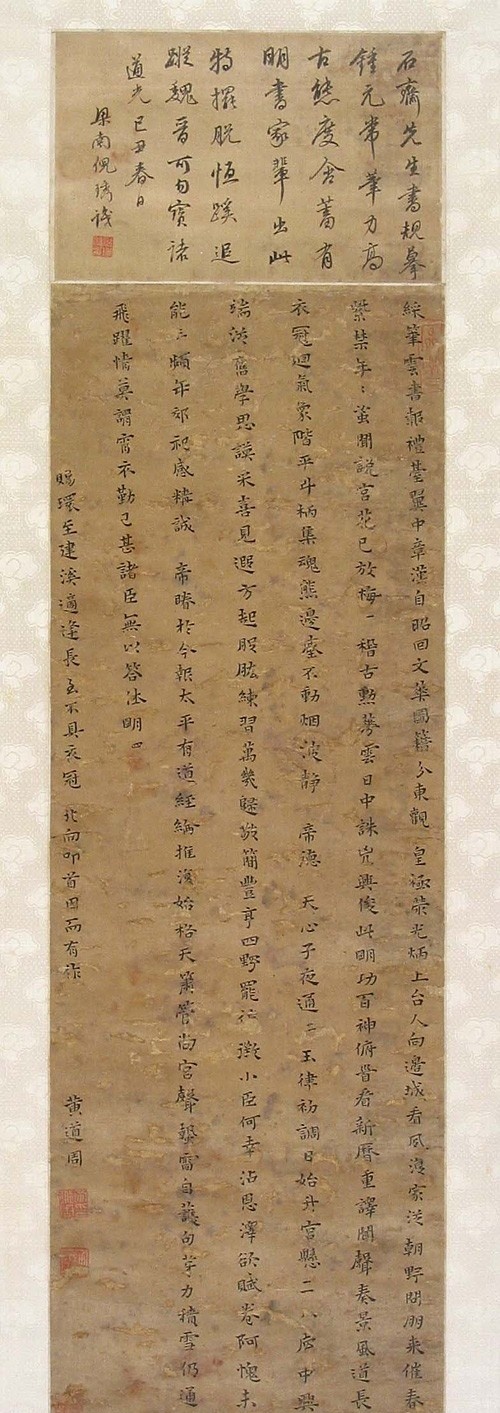 石齋先生書規摹
鍾元常筆力高
古態度含蓄有
明書家輩出此
特擺脫恆蹊追
蹤魏晉可勿寶諸
道光己丑春日
梁南倪
綵筆雲書報禮臺翼中章漢自昭回文華圖籍分東觀皇極榮光炳上台人向邊城看風 家 朝野問朋來催春
紫禁年〻 聞說宮花已放梅一稽古勳華雲日中誅兇興俊此明功百神俯晉看新曆重譯聞聲奏景風道長
衣冠迴氣象階平斗柄集魂熊邊臺不動烟波靜帝德天心子夜通二玉律初調日始升宮懸二八 中興
端 舊學思謨采喜見遐方起股肱練習萬幾 簡豐亨四野罷 徵小臣何幸沾恩澤欲賦卷阿愧未
能三 年郊祀感精誠帝眷於今報太平有道經綸推 始格天簫管尚宮聲 雷自 句芽力積雪仍通
飛躍情莫謂宵衣勤已甚諸臣無以答 明四
賜環至建溪適逢長至不具衣冠北向叩首因而有作
黃道周